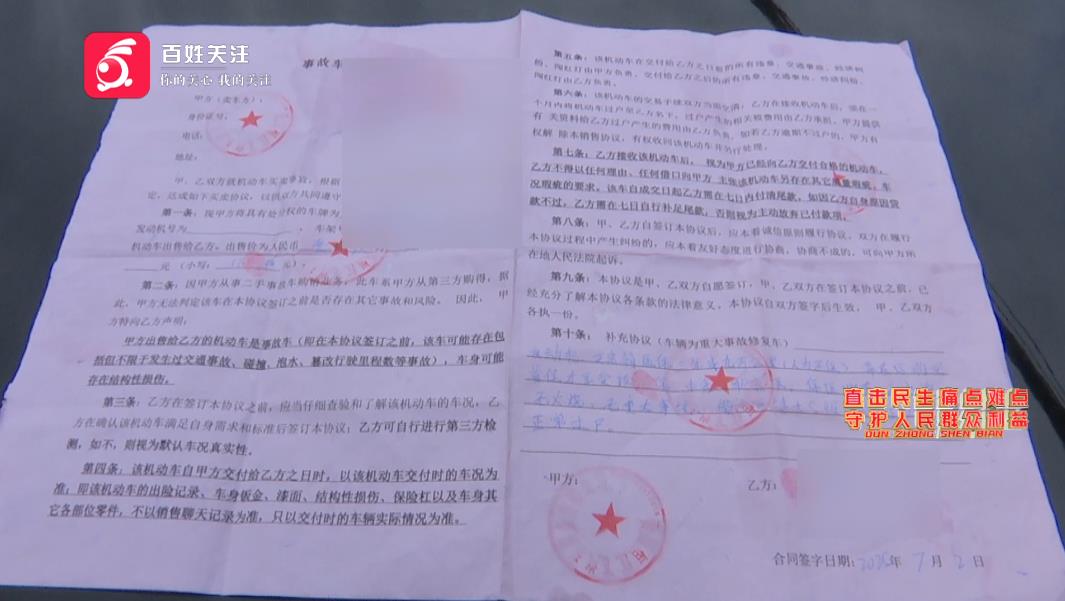 百姓关注
你的关心 我的关注
事故车
甲方（卖车方）：
身份证号：
电话：
地址：
甲、乙双方就机动车买卖事宜，根据
定，达成如下买卖协议，以供双方共同遵守
第一条：现甲方将具有处分权的车牌为
发动机号为 ，车架
机动车出售给乙方。出售价为人民币
元（小写： 元）。
第二条：因甲方从事二手事故车购销业务，此车系甲方从第三方购得，据
此，甲方无法判定该车在本协议签订之前是否存在其它事故和风险。因此，甲
方特向乙方声明：
甲方出售给乙方的机动车是事故车（即在本协议签订之前，该车可能存在包
括但不限于发生过交通事故、碰撞、泡水、篡改行驶里程数等事故），车身可能
存在结构性损伤。
第三条：乙方在签订本协议之前，应当仔细查验和了解该机动车的车况，乙
方在确认该机动车满足自身需求和标准后签订本协议；乙方可自行进行第三方检
测，如不，则视为默认车况真实性．
第四条：该机动车自甲方交付给乙方之日时，以该机动车交付时的车况为
准；即该机动车的出险记录、车身钣金、漆面、结构性损伤、保险杠以及车身其
它各部位零件，不以销售聊天记录为准，只以交付时的车辆实际情况为准。
第五条：该机动车在交付给乙方之日前的所有违章，交通事故，经济纠
纷，闯红灯由甲方负责，交付给乙方之后的所有违章，交通事故，经济纠纷，
闯红灯由乙方负责。
第六条：该机动车的交易手续双方当面交清；乙方在接收机动车后，须在一
个月内将机动车过户至乙方名下，过户产生的相关被费用由乙方承担。甲方提供
有 关资料给乙方过户产生的费用由乙方负责，如若乙方逾期不过户的，甲方有
权解 除本销售协议，有权收回该机动车并另行处理。
第七条：乙方接收该机动车后， 视为甲方已经向乙方交付合格的机动车，
乙方不得以任何理由、任何借口向甲方 主张该机动车另存在其它质量瑕疵，车
况瑕疵的要求。该车自成交日起乙方需在七日内付清尾款，如因乙方自身原因贷
款不过，乙方需在七日自行补足尾款，否则视为主动放弃已付款项。
第八条：甲、乙方自签订本协议后，应本着诚信原则履行协议，双方在履行
本协议过程中产生纠纷的，应本着友好态度进行协商，协商不成的，可向甲方所
在地人民法院起诉。
第九条：本协议是甲、乙方自愿签订，甲、乙方在签订本协议之前，已
经充分了解本协议各条款的法律意义，本协议自双方签字后生效， 甲、乙双方
各执一份。
第十条： 补充协议（车辆为重大事故修复车）
直击民生痛点难点
守护人民群众利益
DUN ZHONG SHEN BIAN
甲方：
乙方：
合同签字日期： 年 7 月 2 日